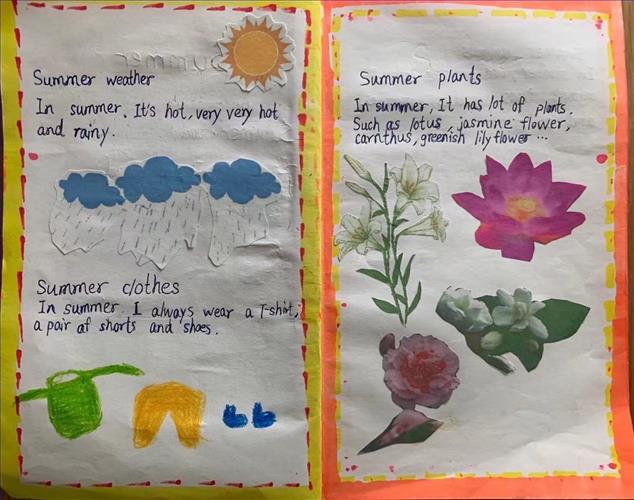 Summer weather
In summer. It's hot, very very hot
and rainy.
Summer clothes
In summer. I always wear a T-shirt,
a pair of shorts and shoes.
Summer plants
In summer, It has lot of plants.
Such as lotus, jasmine flower,
carnthus, greenish lily flower ...